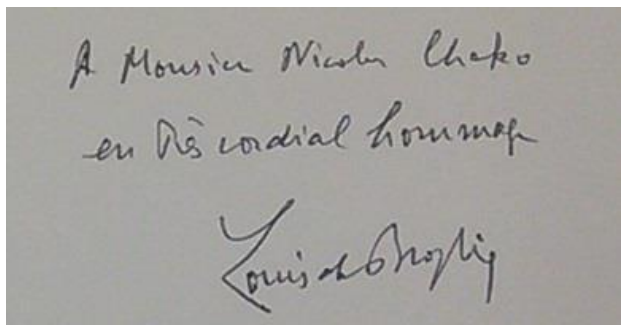 A Monsieur Nicolas Chako
en très cordial hommage
Louis de Broglie